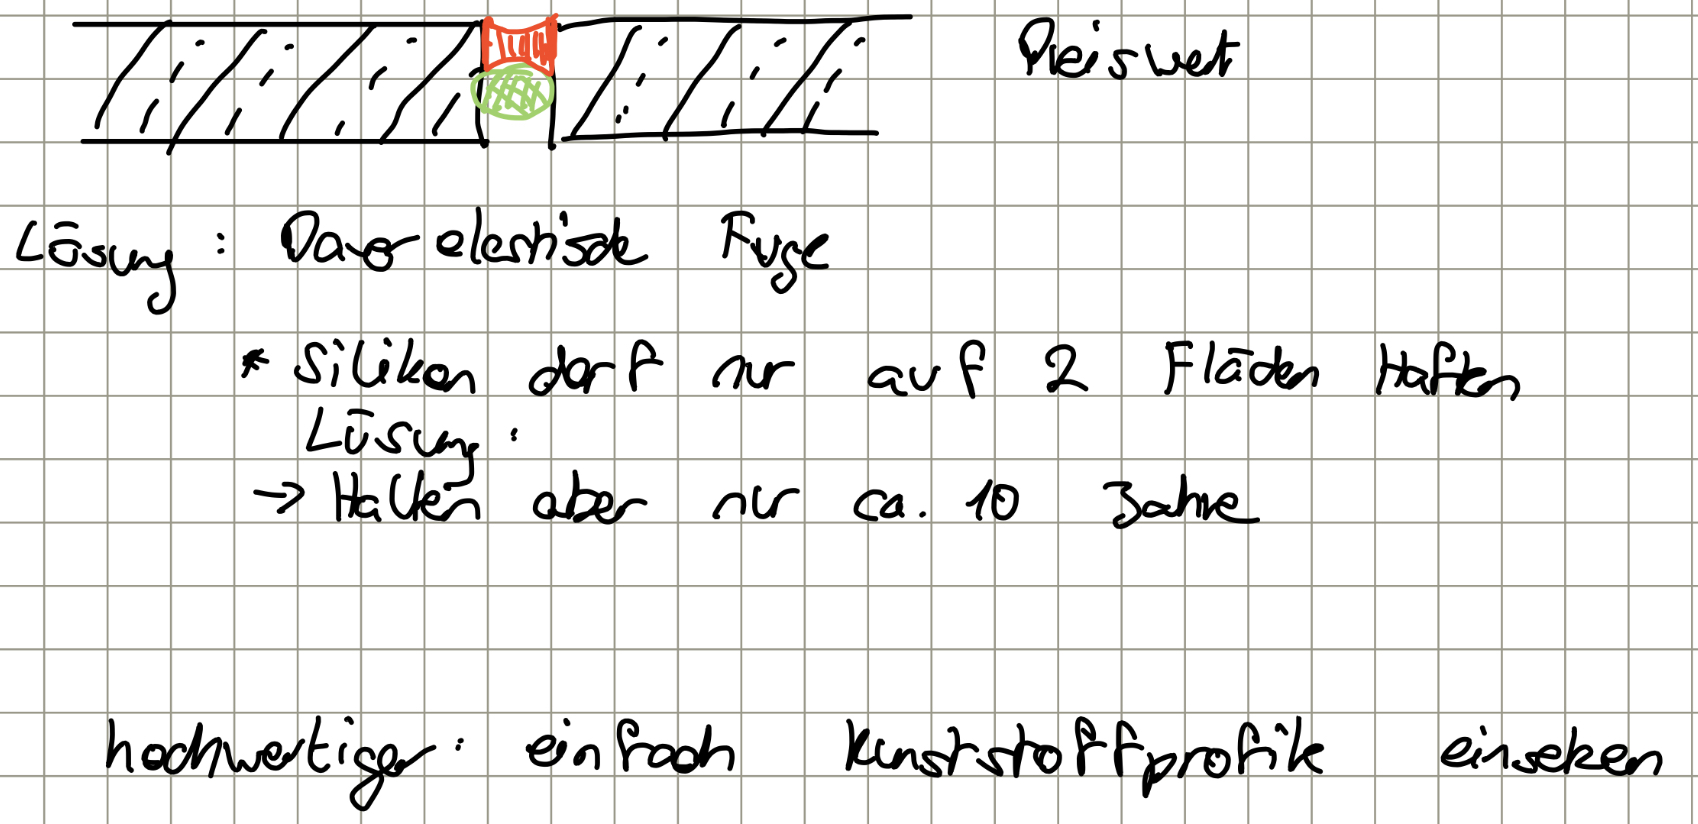 Preiswert
Lösung : Dauerelastische Fuge
* Silikon darf nur auf 2 Flächen Haften
Lösung :
→ Halten aber nur ca. 10 Jahre
hochwertiger : einfach Kunststoffprofile einsetzen